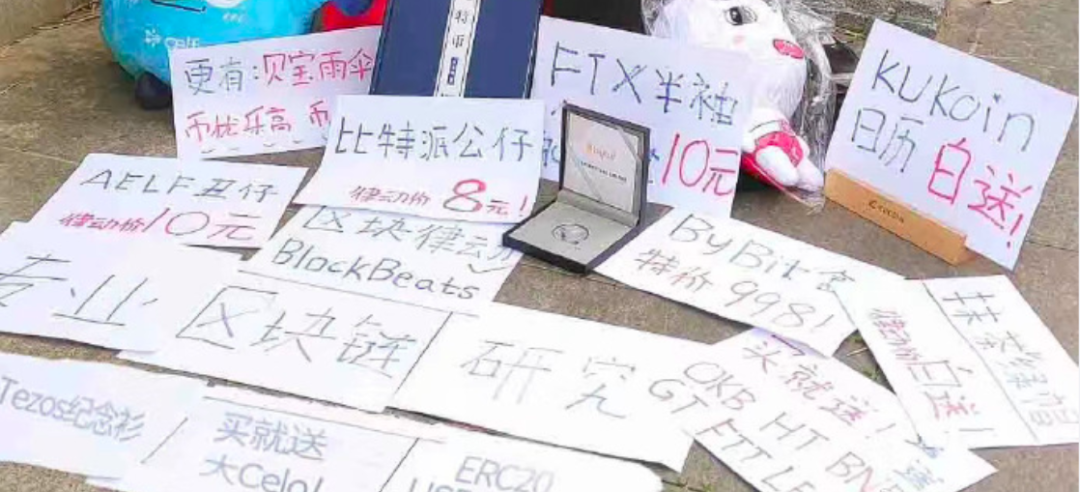 更有:贝宝雨伞
币优乐高 币
特币
FTX半袖
10元
KUKoin
日历
白送!
比特派公仔
律动价8元!
AELF丑仔
律动价10元
区块律动
BlockBeats
ByBit
特价 998!
专业
区块链
研究
买就送!
OKB HT BN
GT FTT LE
律动价白送!
Tezos纪念衫
买就送
大Celo!
ERC20